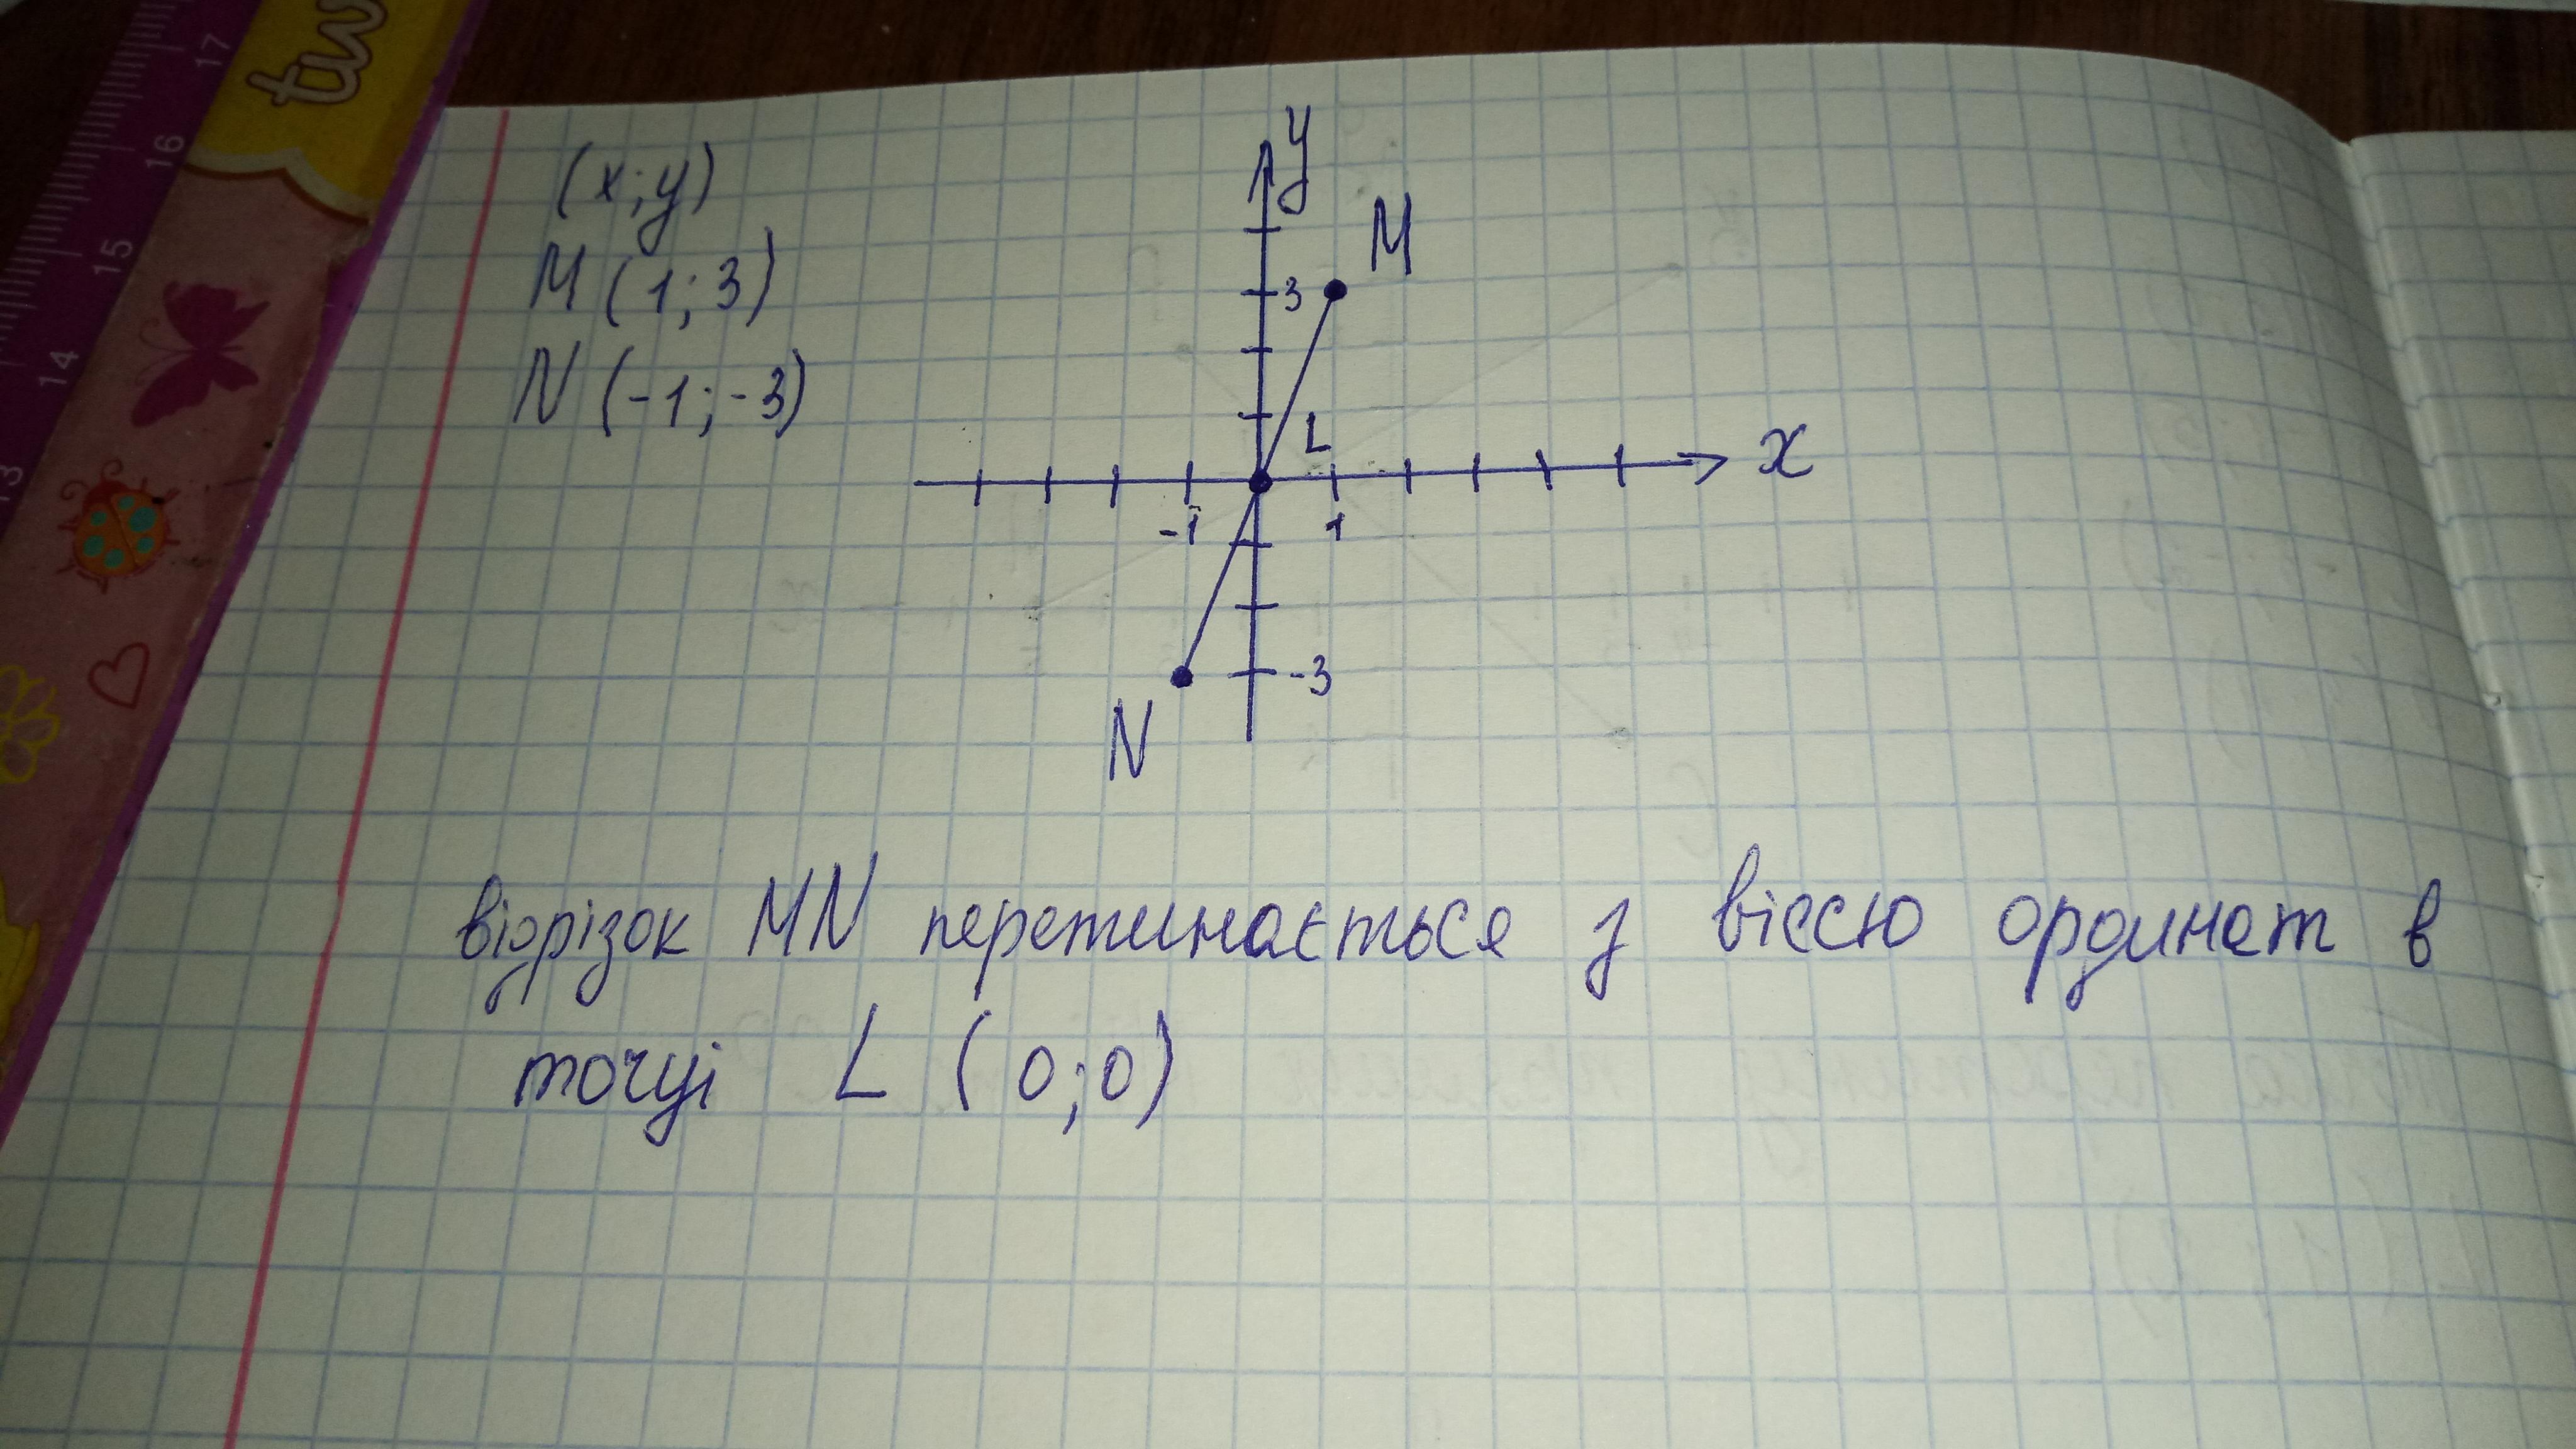 tw
17
16
15
14
13
(x; y)
M (1; 3)
N (-1; -3)
y
M
3
L
x
-1
1
-3
N
відрізок MN перетинається з віссю ординат в
точці L (0; 0)